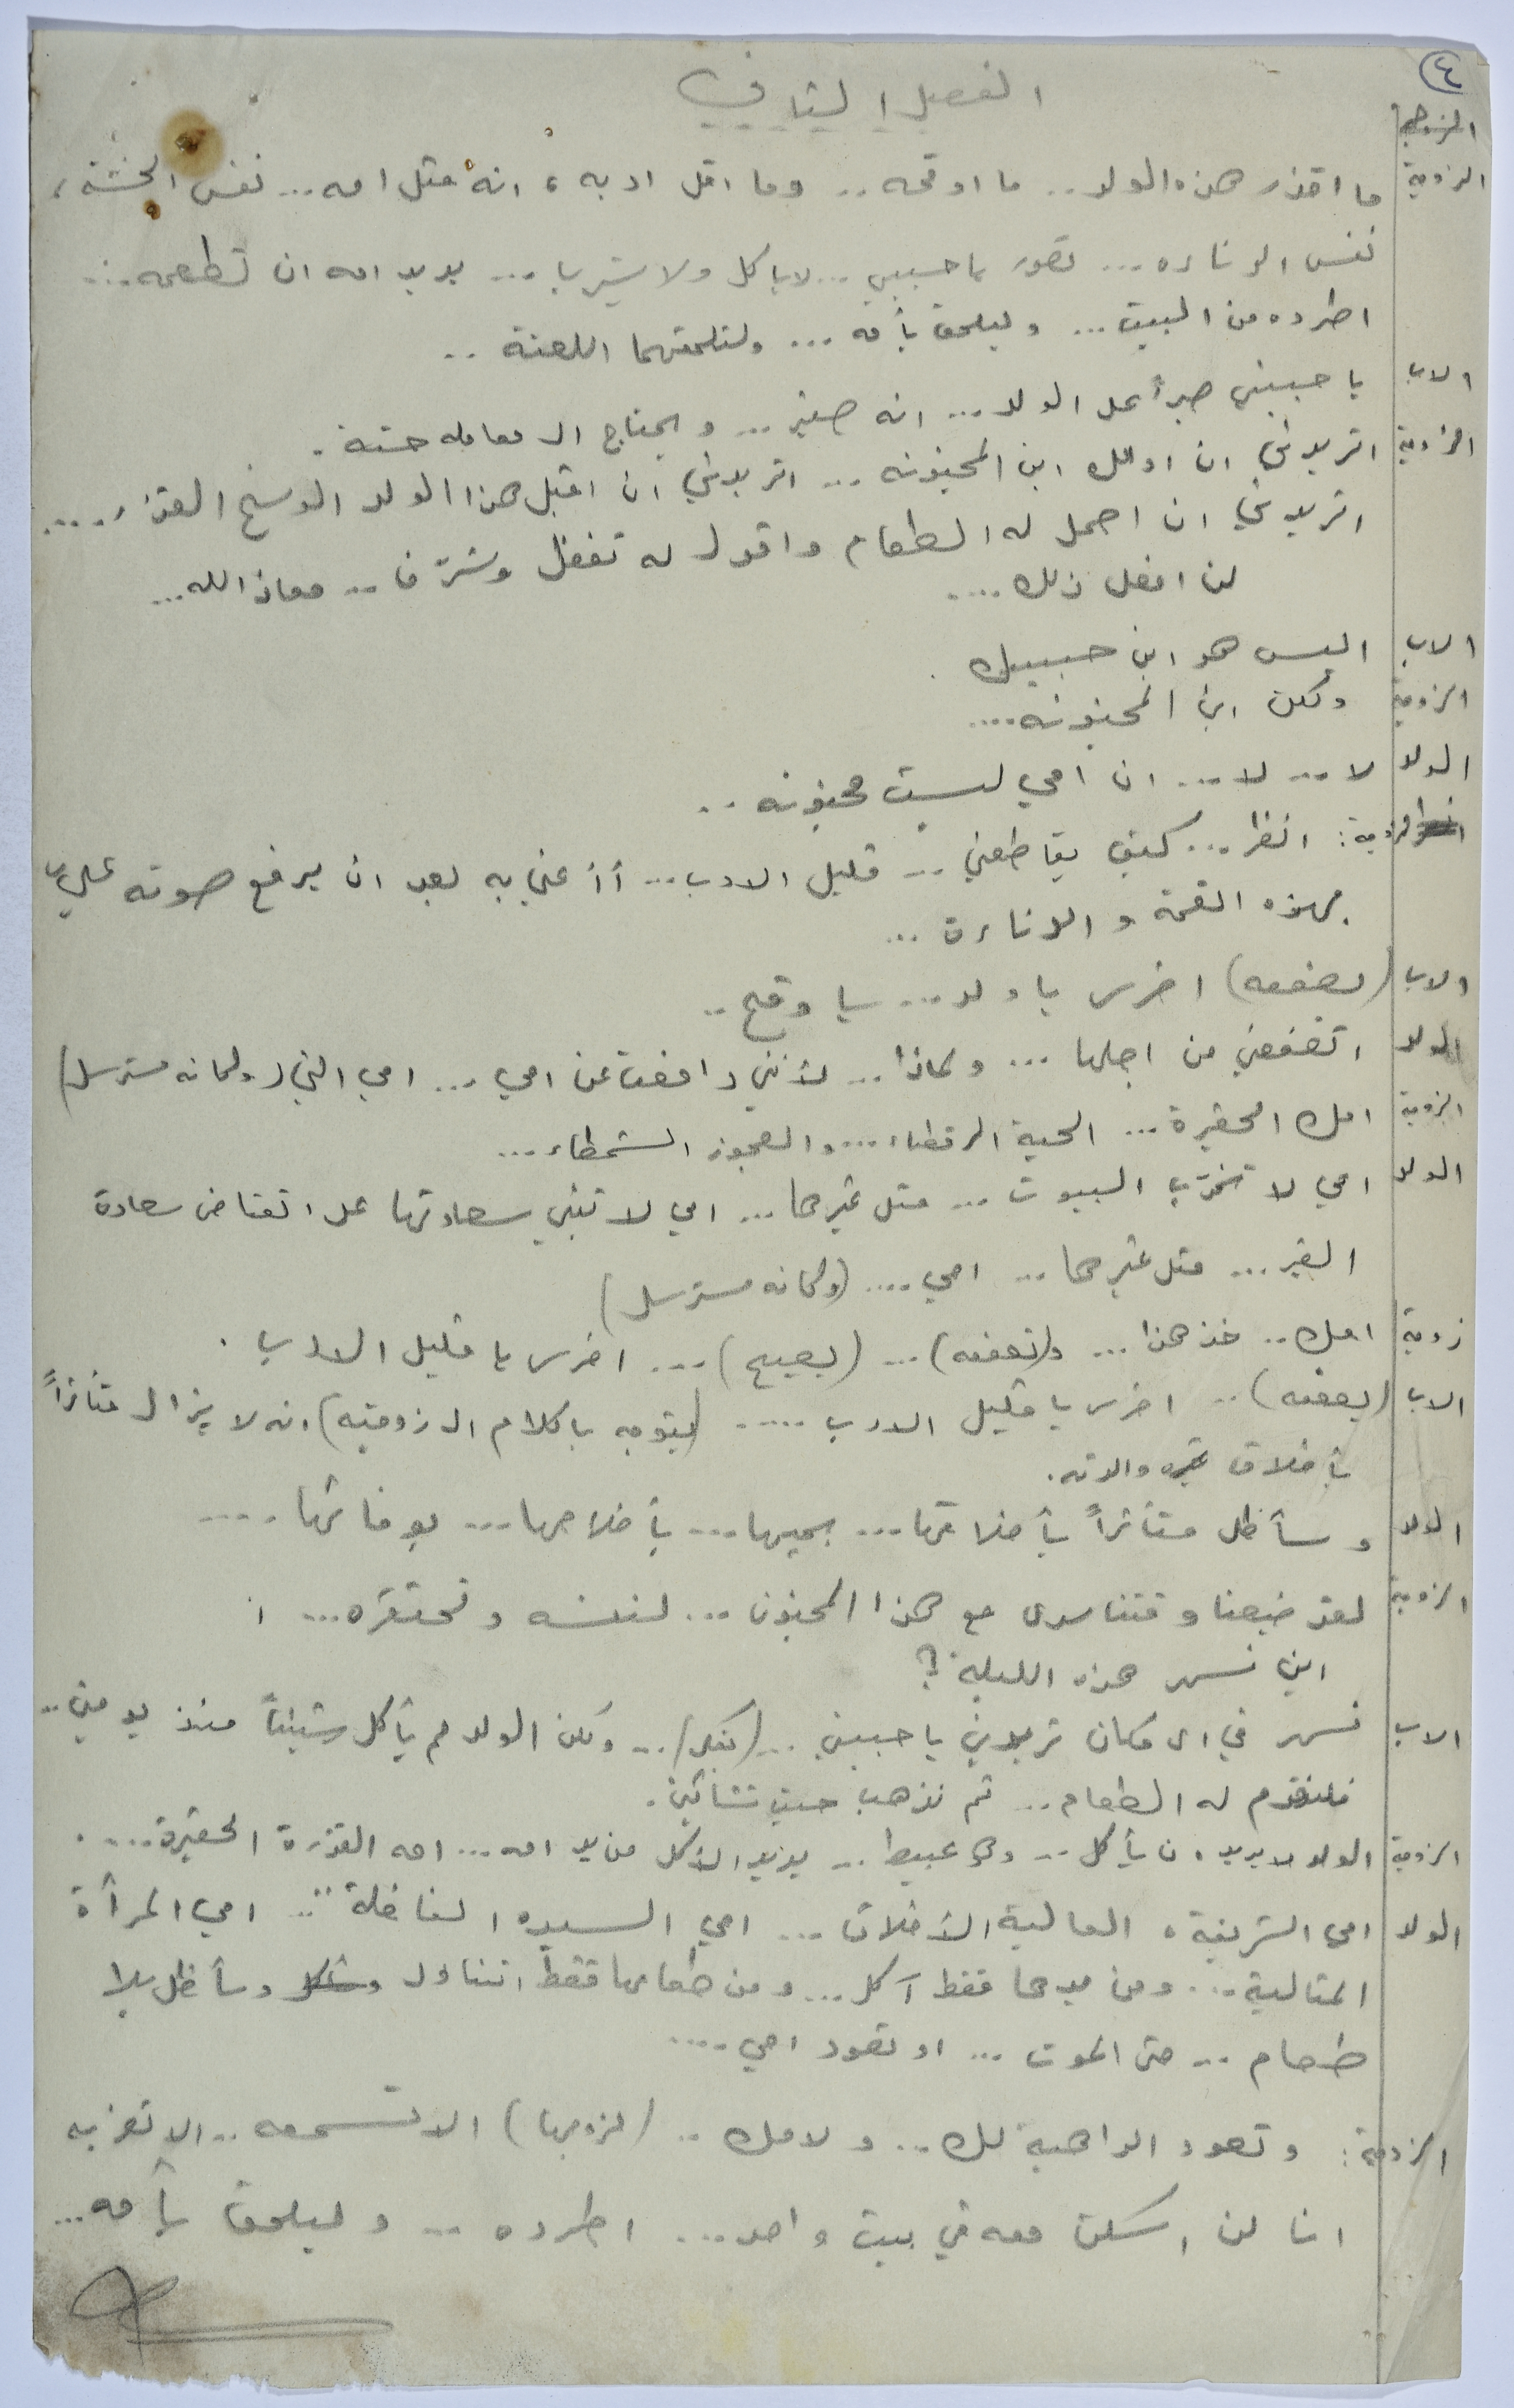 ٤
الفصل الثاني
الزوجة ما اقذر هذه الولد .. ما اوقحه .. وما اقل ادبه ، انه مثل امه ... نفس الخسّة ،
نفس الدناءه ... تصور يا حبيبي ... لا ياكل ولا يشرب ... يريد امه ان تطعمه ...
اطرده من البيت ... وليلحق بأمه ... ولتلحقهما اللعنة ..
الاب يا حبيبتي صبراً على الولد ... انه صغير ... ويحتاج الى معامله حسنة .
الزوجة اتريدني ان ادلل ابن المجنونه ... اتريدني ان اقبل هذا الولد الوسخ القذر .....
اتريدني ان احمل له الطعام واقول له تفضل وشرّف .. معاذ الله ...
لن افعل ذلك ....
الاب اليس هو ابن حبيبك .
الزوجة ولكن ابن المجنونه ....
الولد لا ... لا ... ان امي ليست مجنونه ..
الزوجة : انظر ... كيف يقاطعني .. قليل الادب ... أأعتني به بعد ان يرفع صوته عليّ
بهذه القحة والدناءة ...
الاب (يصفعه) اخرس يا ولد ... يا وقح ..
الولد اتصفعني من اجلها ... ولماذا .. لأنني دافعت عن امي ... امي التي (ولكانه مسترسل)
الزوجة امك الحقيرة ... الحية الرقطاء ... والعجوز الشمطاء ...
الولد امي لا تخرّب البيوت ... مثل غيرها ... امي لا تبني سعادتها على انقاض سعادة
الغير ... مثل غيرها ... امي .... (وكانه مسترسل)
زوجة امك .. خذ هذا ... (تصفعه) ... (يصيح) ... اخرس يا قليل الادب .
الاب (يصفعه) .. اخرس يا قليل الادب ..... (يتوجه بالكلام الى زوجته) انه لا يزال متأثراً
بأخلاق والدته .
الولد وسأظل متأثراً بأخلاقها ... بحبها ... بأخلاصها ... بوفائها ....
الزوجة لقد ضيعنا وقتنا سدى مع هذا المجنون ... لننسه ونحتقره ...
اين نسهر هذه الليلة ؟
الاب نسهر في اي مكان تريدين يا حبيبتي .. (يفكر) .. ولكن الولد لم يأكل شيئاً منذ يومين ..
فلنقدم له الطعام .. ثم نذهب حيث تشائين .
الزوجة الولد لا يريد ان يأكل .. ولا عبيط .. يريد الأكل من يد امه ... امه القذرة الحقيرة ....
الولد امي الشريفة ، العالية الأخلاق ... امي السيده الفاضلة ... امي المرأة
المثالية ... ومن يدها فقط آكل ... ومن طعامها فقط اتناول وسأظل بلا
طعام .. حتى الموت ... او تعود امي ....
الزوجة : وتعود الواهبة لك ... ولامك .. (لزوجها) الا تسمعه .. الا تضربه
انا لن اسكن معه في بيت واحد ... اطرده ... وليلحق بأمه ...